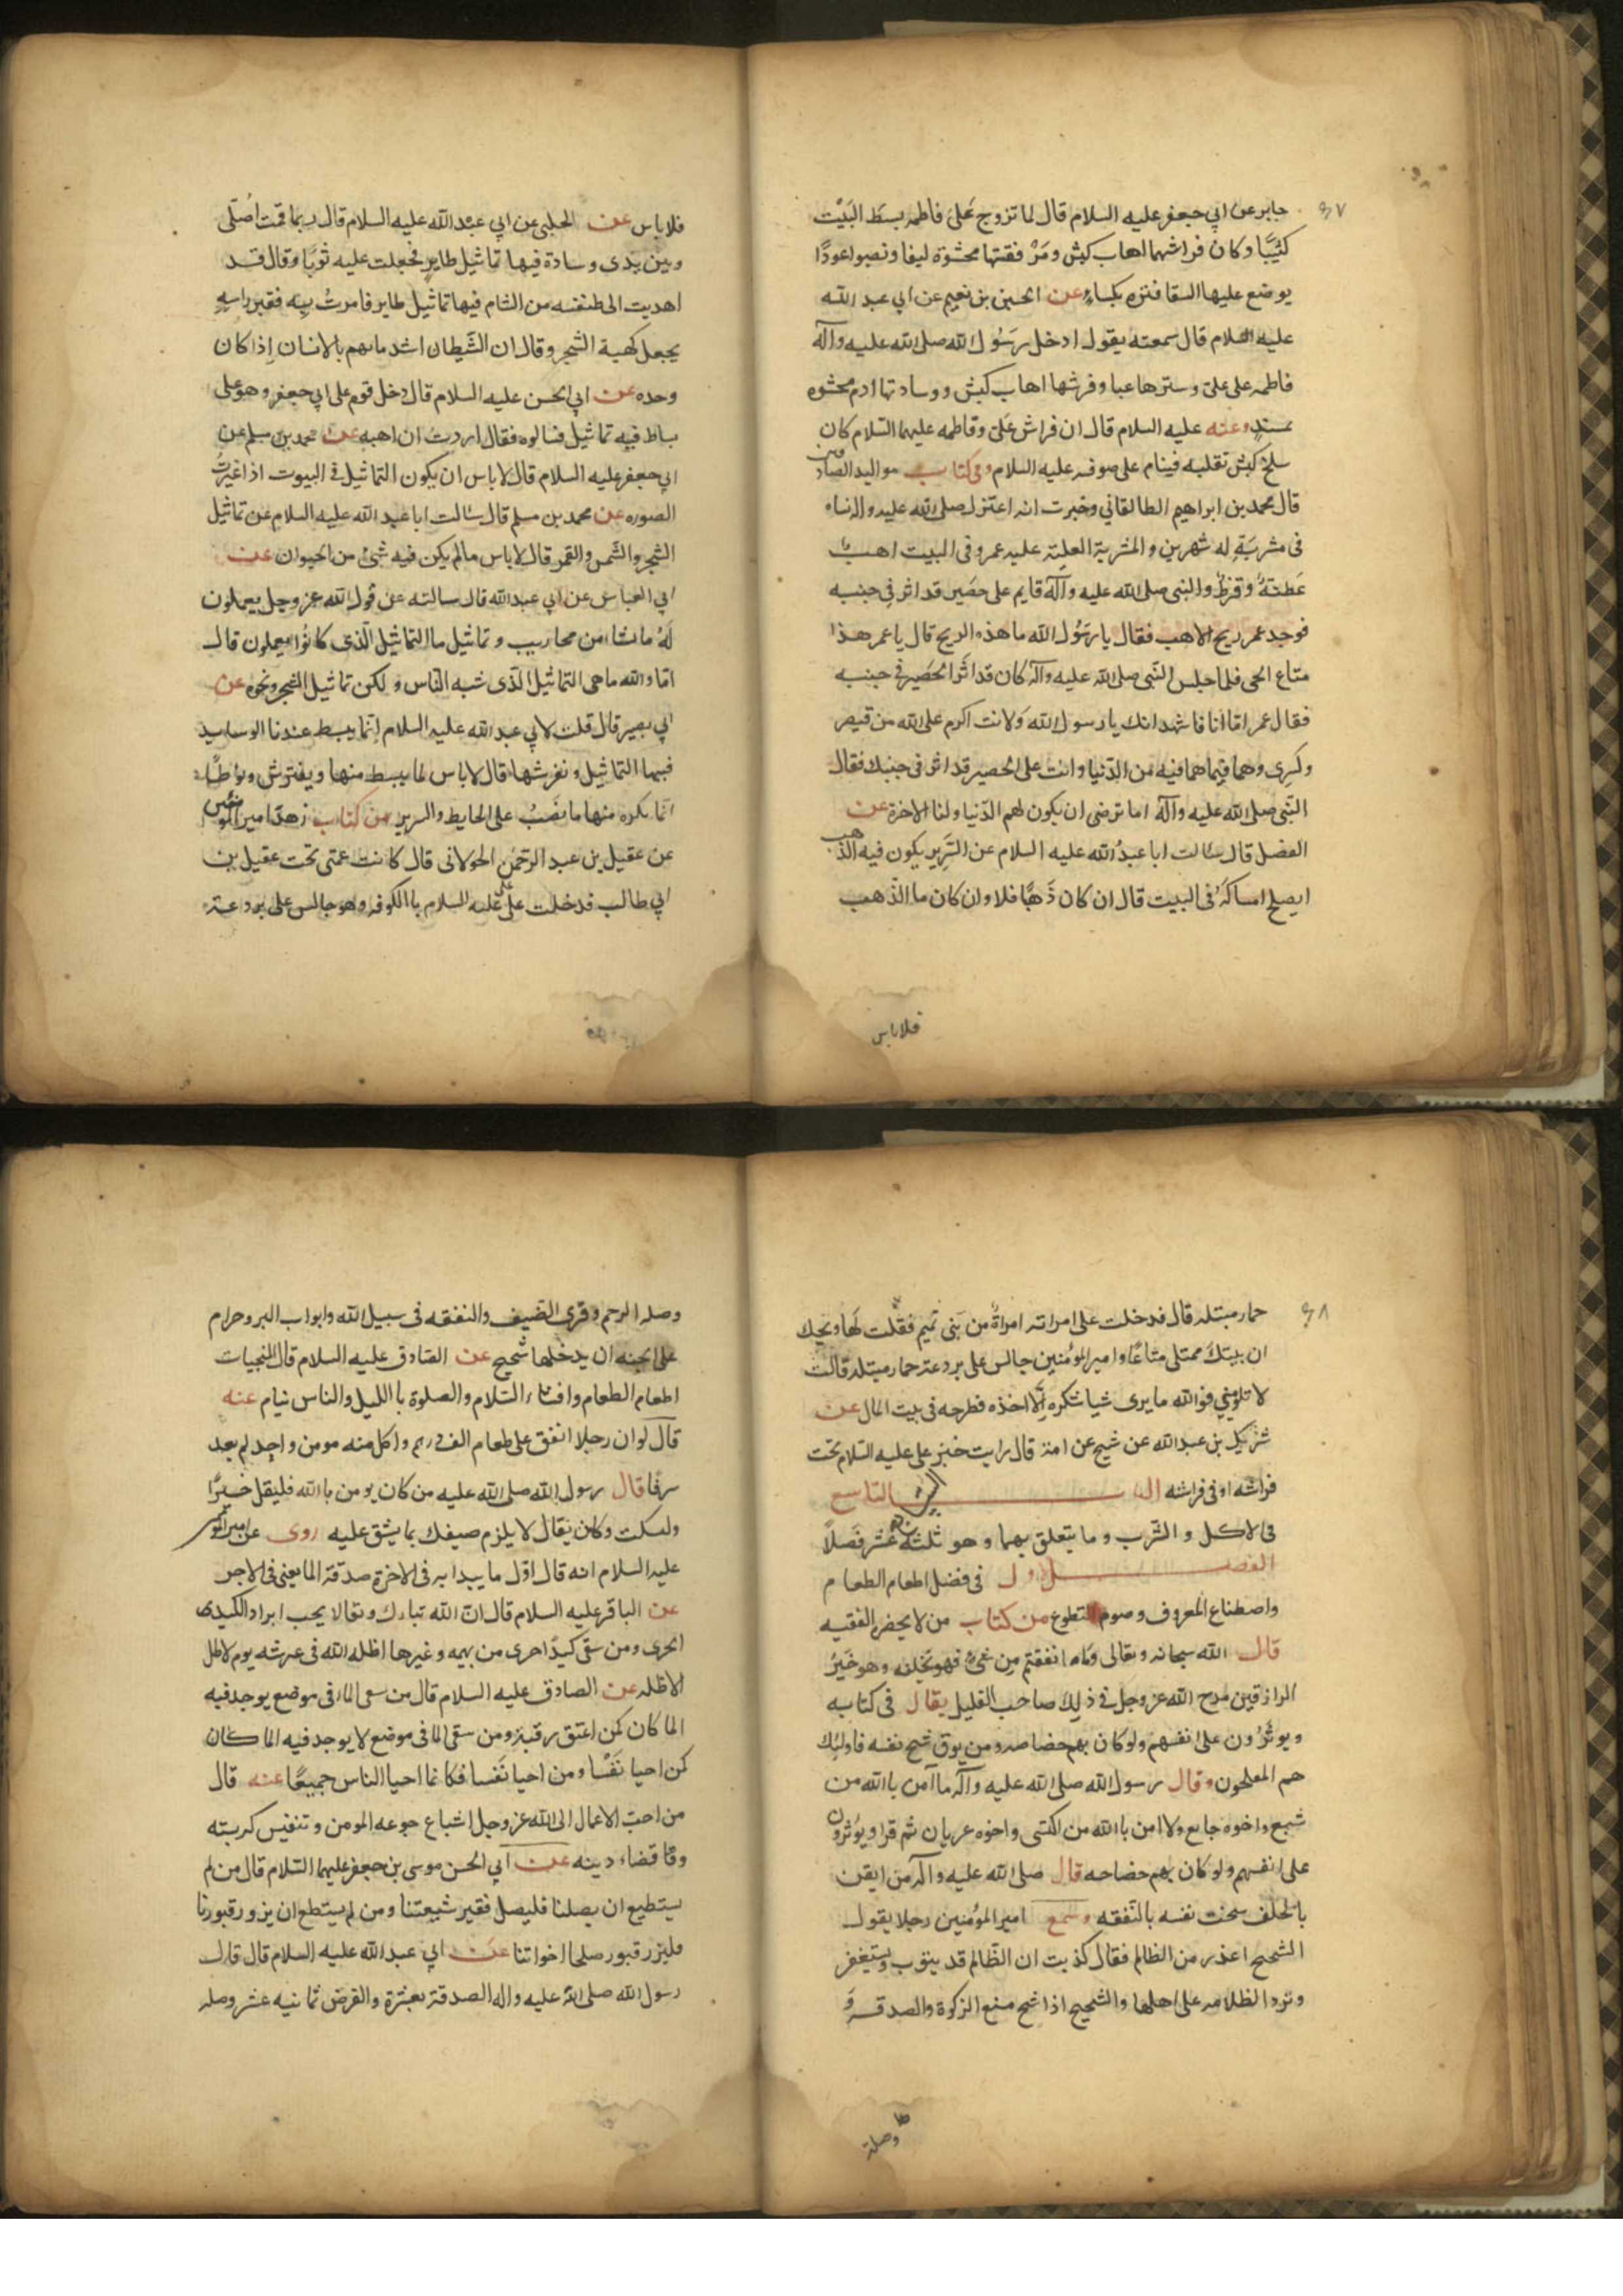 ٤٧
جابر عن ابي جعفر عليه السلام قال لما تزوج علىّ فاطمه بسط البَيْت
كثيبًا وكان فراشهما اهاب كبش ومَرْفقتها محشوّة ليفا ونصبوا عودًا
يوضع عليها السقا فستره بكساء عن الحسين بن نعيم عن ابي عبد الله
عليه السلام قال سمعته يقول ادخل رسَوُل الله صلى الله عليه وآله
فاطمه على علىّ وسترها عبا وفرشها اهاب كبش ووسادتها ادم محشوه
بمسدٍ وعنه عليه السلام قال ان فراش علىّ وفاطمه عليهما السّلام كان
سلخ كبش تقلبه فينام على صوفه عليه السلام وفى كتاب مواليد الصادقين
قال محمد بن ابراهيم الطالقاني وخبرت انه اعتزل صلى الله عليه واله نساه
فى مشربَةٍ له شهرين والمشربة العلِيّه عليه عمر وفى البيت اهبٌ
عَطنَةٌ وقرظٌ والنبى صلى الله عليه وآله قايم على حصَير قد اثر فى جنبه
فوجد عمر ريح الاهب فقال يا رسَوُل الله ما هذه الريح قال يا عمر هذا
متاع الحى فلما جلس النّبى صلى الله عليه وآله كان قد اثَر الحَصير فى جنبه
فقال عمر امّا انَا فاشهد انك يا رسول الله وَلانت اكرم على الله من قيصر
وكسِرى وهما فيما هما فيه من الدّنيا وانت على الحصير قد اثر فى جنبك فقال
النّبى صلى الله عليه وآله اما ترضى ان يكون لهم الدّنيا ولنا الاخرة عن
الفضل قال سالت ابا عبدُ الله عليه السلام عن السّرير يكون فيه الذّهب
ايصلح امساكهُ فى البيت قال ان كان ذَهبًا فلا وان كان ما الذّهب
فلاباس
فلاباس عن الحلبى عن ابي عبْد الله عليه السلام قال ربما قمت اصُلّى
وبين يدى وسادة فيها تماثيل طايرٍ فجعلت عليه ثوبًا وقال قد
اهديت الى طنفسه من الشام فيها تماثيل طاير فامرتُ به فغير راسه
يجعل كهيـة الشّجر وقال ان الشّيطان اشد ما يهم بالانسان إذا كان
وحده عن ابي الحسن عليه السلام قال دخل قوم على ابي جعفر وهوَ على
بساط فيه تماثيل فسالوه فقال اردتُ ان اهبه عن محمد بن مسلم عن
ابي جعفر عليه السلام قال لا باس ان يكون التماثيل فى البيوت اذا غيرتُ
الصوره عن محمد بن مسلم قال سالت ابا عبد الله عليه السلام عن تماثيل
الشجر والشّمس والقمر قال لا باس ما لم يكن فيه شئ من الحيوان عن
ابي العباس عن ابي عبد الله قال سالته عن قول الله عز وجل يعملون
لَهُ ما يشاء من محاريب وتماثيل ما التماثيل الّذى كانُوا يعملون قال
امّا والله ما هى التماثيل الّذى شبه النّاس ولكن تماثيل الشجر ونحوه عن
ابي بصير قال قلت لابي عبد الله عليه السلام إنما يبسط عندنا الوسايد
فيها التماثيل ونفرشها قال لا باس لما يبسط منها ويفترش ويوطا
انما يكره منها ما نصَبُ على الحايط والسرير من كتاب زهد امير المؤمنين
عن عقيل بن عبد الرّحمٰن الخولانى قال كانت عمتى تحت عقيل بن
ابي طالب فدخلت على علىّ عليه السلام بالكوفه وهو جالس على بردعة
٤٨
حمار مبتله قال فدخلت على امراته امراةٌ من بَنى تميم فقلت لهَا ويحك
ان بيتكِ ممتلى متاعًا وامير المؤُمنين جالس على بردعة حمار مبتله قالت
لا تلوميني فوَ الله ما يرى شيا نكره إلّا اخذه فطرحه فى بيت المال عن
شَرْيك بن عبد الله عن شيخ عن امه قال رايت خبز على عليه السّلام تحت
فراشه او فى فراشه البـاب التاسع
فى الاكل والشّرب وما يتعلق بهما وهو ثلثة عشر فَصلاً
الفصـل الاول فى فضل اطعام الطعام
واصطناع المعروف وصوم التطوع من كتاب من لا يحضره الفقيه
قال الله سبحانه وتعالى وَما انفقتم مِن شئٌ فهو يخلفه وهو خَيرُ
الرازقين مدح الله عز وجل فى ذلِك صاحب القليل يقال فى كتابه
ويوثرُون على انفسهم ولو كان بهم خصاصه ومن يوق شح نفسه فاولئك
هم المفلحون وقال رسول الله صلى الله عليه وآله ما آمن بالله من
شبع واخوه جايع ولا امن بالله من اكتسى واخوه عريان ثم قرا ويؤُثرون
على انفسهم ولو كان بهم خصاصه قال صلى الله عليه وآله من ايقن
بالخلف سخت نفسه بالنّفقه وسمع امير المؤُمنين رجلا يقول
الشحيح اعذر من الظالم فقال كذبت ان الظّالم قد يتوب ويستغفر
وترد الظلامه على اهلها والشحيح اذا شح منع الزكوة والصدقـه وَ
وصلة
وصلة الرحم وقرى الضّيف والنفقه فى سبيل الله وابواب البر وحرام
على الجنه ان يدخلها شحيح عن الصّادق عليه السلام قال المنجيات
اطعام الطعام وافشاء السّلام والصلوة باالليل والناس نيام عنه
قال لو ان رجلا انفق على طعام الف درهم واكل منه مومن واحدٍ لم يعد
سرفًا قال رسول الله صلى الله عليه من كان يومن باالله فليقل خيرًا
وليسكت وكان يَقال لا يلزم ضيفك بما يشق عليه روى عن امير المؤمنين
عليه السلام انه قال اوّل ما يبدا به فى الاخرة صدقة الما يعنى فى الاجر
عن الباقر عليه السلام قال انّ الله تبارك وتعالا يحب ابراد الكبدى
الحرى ومن سقى كبدًا حرى من بهيمه وغيرها اظله الله فى عرشه يوم لا ظل
الا ظله عن الصادق عليه السلام قال من سقى الما فى موضع يوجد فيه
الما كان كمن اعتق رقبة ومن سقى الما فى موضع لا يوجد فيه الما كان
كمن احيا نَفْسًا ومن احيا نَفسا فكانما احيا الناس جميعًا عنه قال
من احب الاعمال الى الله عز وجل اشباع جوعه المومن وتنفيس كربته
وقضاء دينه عن ابي الحسن موسى بن جعفر عليهما السّلام قال من لم
يستطيع ان يصلنا فليصل فقير شيعتنا ومن لم يستطع ان يزور قبورنا
فليزر قبور صلحا اخواننا عن ابي عبد الله عليه السلام قال قال
رسول الله صلى الله عليه واله الصدقة بعشرة والقرض ثمانيه عشر وصله